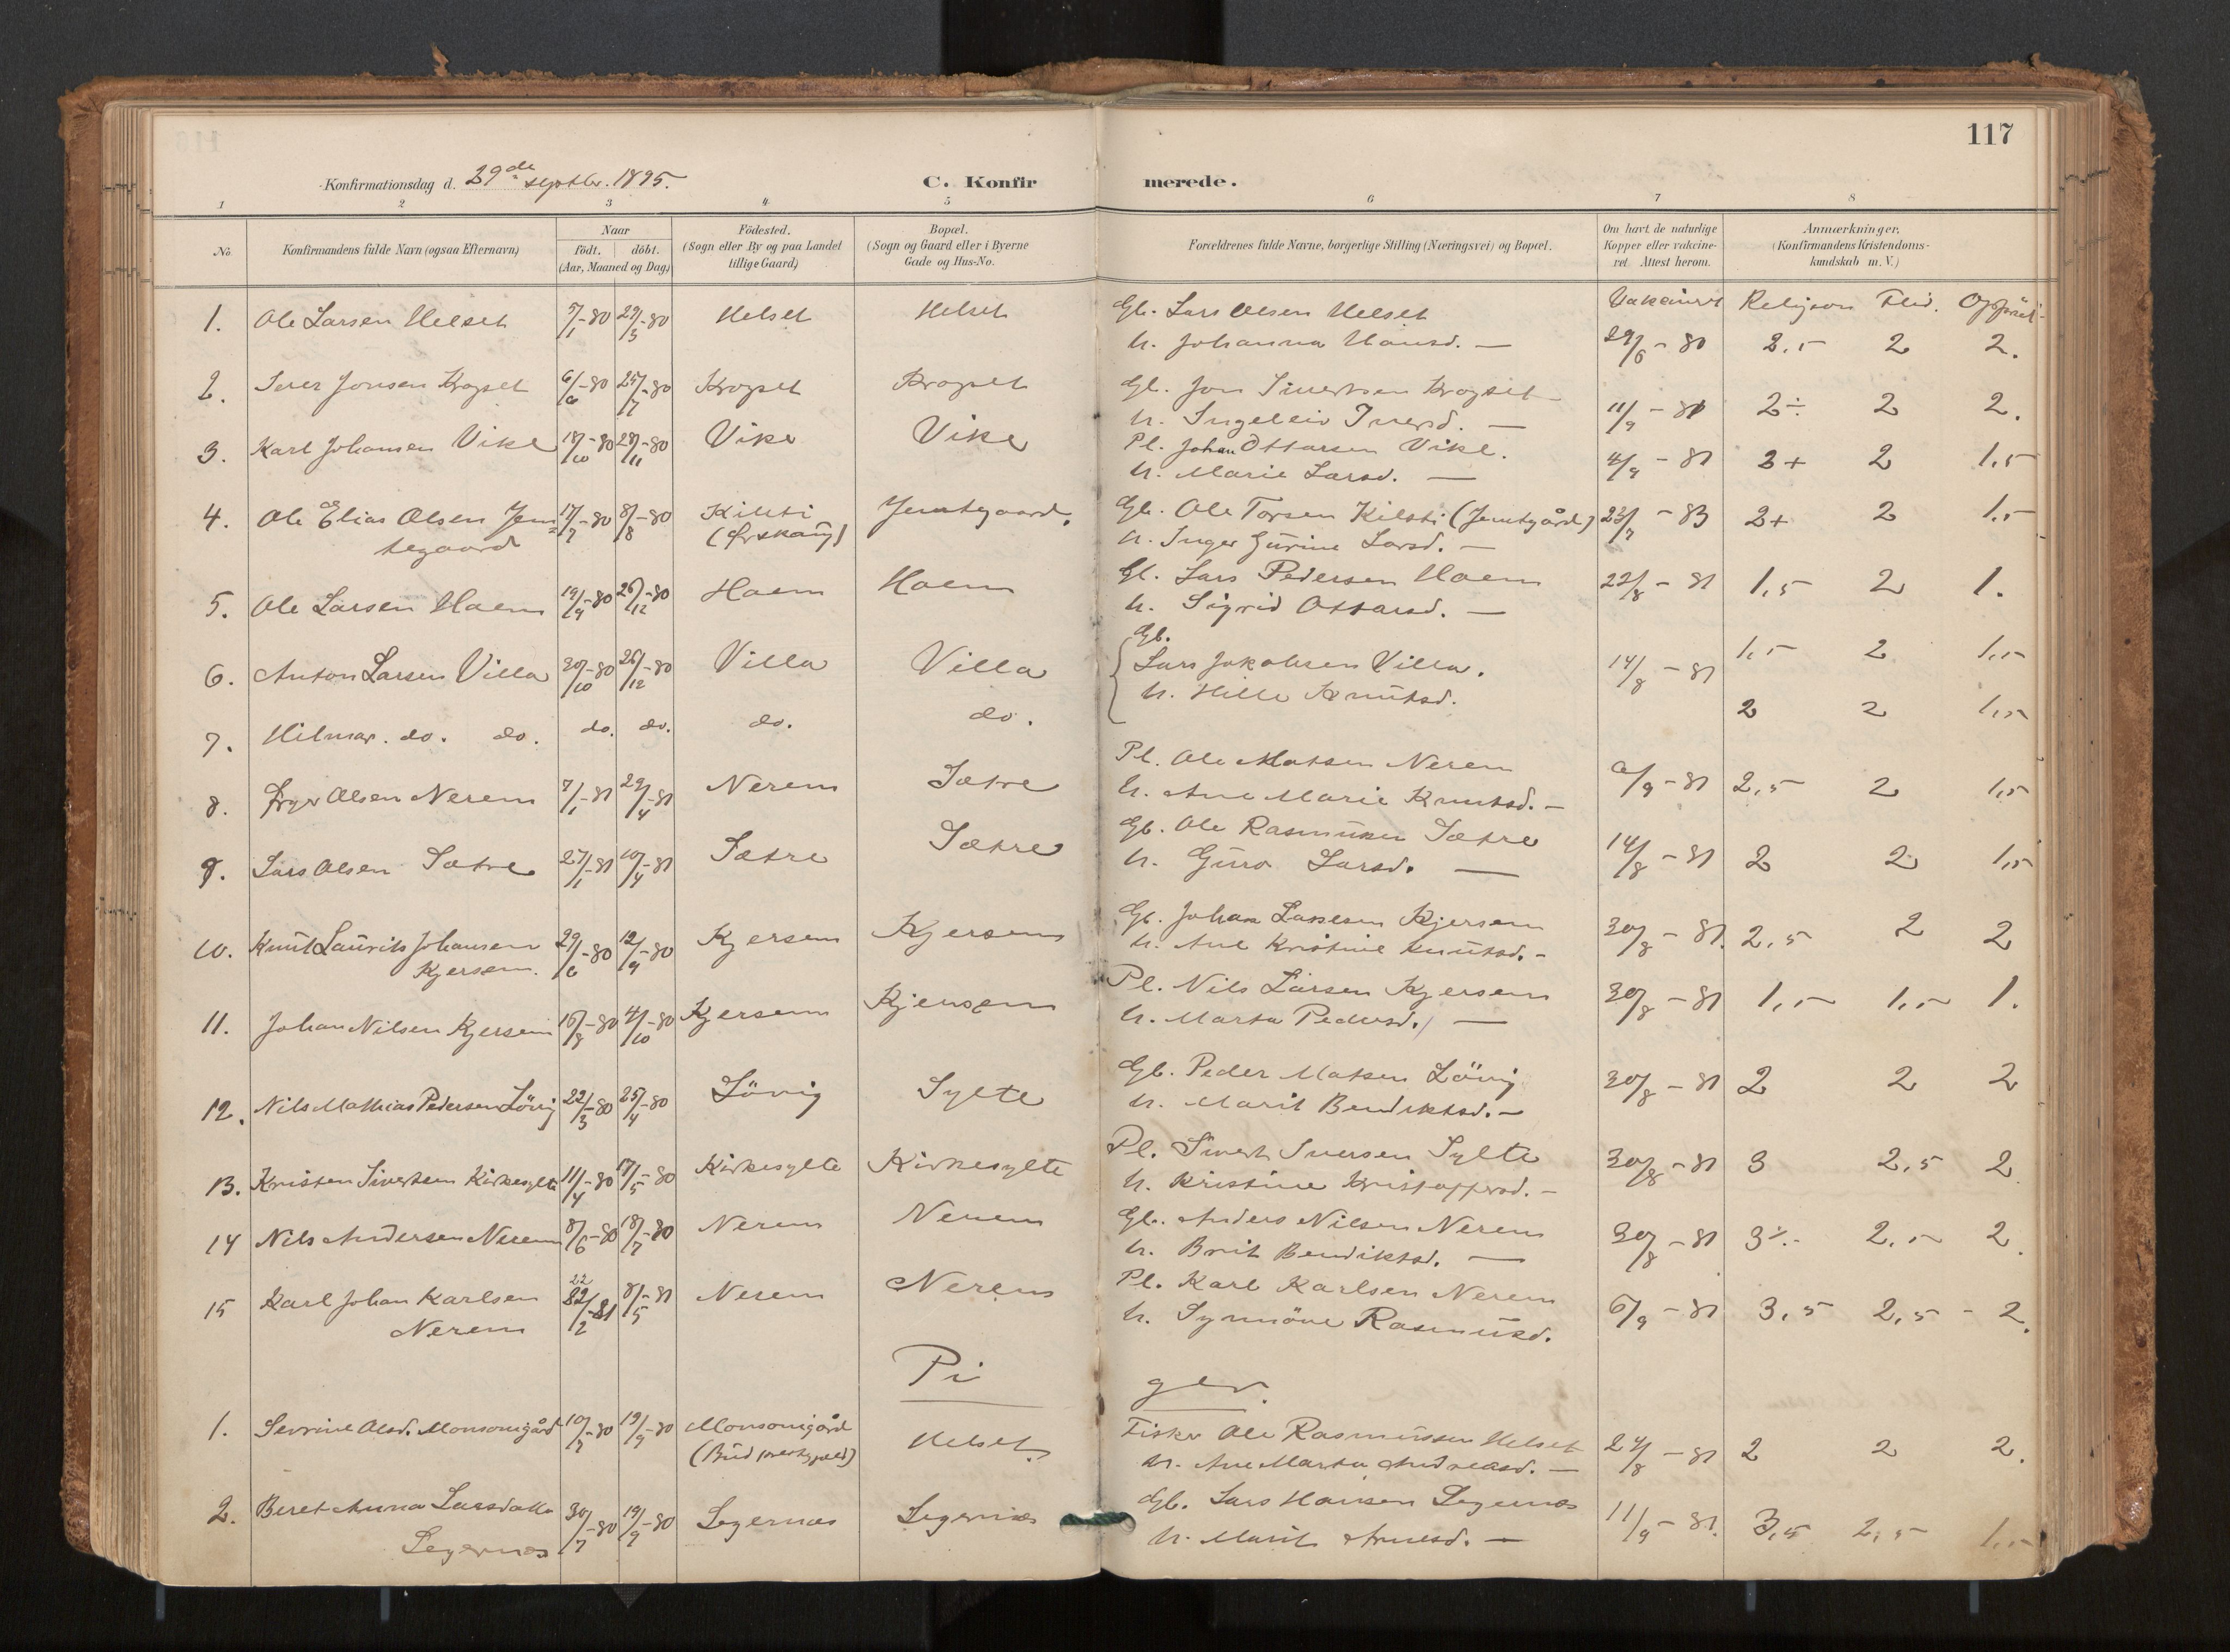 117
Konfirmationsdag d. 29de septbr. 1895.
C. Konfirmerede.
1 2 3 4 5 6 7 8
No.
Konfirmandens fulde Navn (ogsaa Efternavn)
Naar
födt. döbt.
(Aar, Maaned og Dag)
Födested.
(Sogn eller By og paa Landet
tillige Gaard)
Bopæl.
(Sogn og Gaard eller i Byerne
Gade og Hus-No.
Forældrenes fulde Navne, borgerlige Stilling (Næringsvei) og Bopæl.
Om havt de naturlige
Kopper eller vakcine-
ret. Attest herom.
Anmærkninger.
(Konfirmandens Kristendoms-
kundskab m. V.)
Religion Flid.
1. Ole Larsen Helset 5/1-80 29/3-80 Helset Helset Gb. Lars Olsen Helset
h. Johanna Hansd. — 29/6-80 2,5 2 2.
2. Iver Jonsen Krogset 6/6-80 25/7-80 Krogset Krogset Gb. Jon Sivertsen Krogset
h. Ingeleiv Iversd. — 11/9-81 2÷ 2 2.
3. Karl Johansen Vike 18/10-80 28/11-80 Vike Vike Pl. Johan Ottarsen Vike.
h. Marie Larsd. — 4/9-81 2+ 2 1,5
4. Ole Elias Olsen Jem= 17/7-80 8/8-80 Kilsti Jemtgaard. Gb. Ole Torsen Kilsti (Jemtgård) 23/7-83 2+ 2 1,5
tegaard (Ørskaug) h. Inger Gurine Larsd. —
5. Ole Larsen Haem 19/9-80 26/12-80 Haem Haem Gb. Lars Pedersen Haem 22/8-81 1,5 2 1.
h. Sigrid Ottarsd. —
6. Anton Larsen Villa 30/10-80 26/12-80 Villa Villa Gb.
Lars Jakobsen Villa. 14/8-81 1,5 2 1,5
h. Hille Knutsd.
7. Hilmar. do. do. do. do. do. do. 2 2 1,5
8. Olsen Nerem 7/1-81 29/4-81 Nerem Sætre Pl. Ole Matsen Nerem
h. Ane Marie Knutsd. — 6/9-81 2,5 2 1,5
9. Lars Olsen Sætre 27/1-81 10/4-81 Sætre Sætre Gb. Ole Rasmusen Sætre
h. Guro Larsd. — 14/8-81 2 2 1,5
10. Knut Laurits Johansen 29/6-80 12/9-80 Kjersem Kjersem Gb. Johan Larsen Kjersem 30/8-81. 2,5 2 2
Kjersem. h. Ane Kristine Knutsd. —
11. Johan Nilsen Kjersem 16/8-80 4/10-80 Kjersem Kjersem Pl. Nils Larsen Kjersem 30/8-81 1,5 1,5 1.
h. Marta Pedersd. —
12. Nils Mathias Pedersen Lövig 22/3-80 25/4-80 Lövig Sylte Gb. Peder Matsen Lövig 30/8-81 2 2 2
h. Marit Bendiktsd. —
13. Kristen Sivertsen Kirkesylte 11/4-80 17/5-80 Kirkesylte Kirkesylte Pl. Sivert Iversen Sylte 30/8-81 3 2,5 2
h. Kristine Kristoffersd. —
14 Nils Andersen Nerem 8/6-80 18/7-80 Nerem Nerem Gb. Anders Nilsen Nerem 30/8-81 3÷ 2,5 2.
h. Brit Bendiktsd. —
15 Karl Johan Karlsen 22/2-81 8/5-81 Nerem Nerem Pl. Karl Karlsen Nerem 6/9-81 3,5 2,5 - 2.
Nerem h. Synnöve Rasmusd.
Piger.
1. Sevrine Olsd. Monsomgård 10/7-80 19/9-80 Monsomgård Helset Fisker Ole Rasmussen Helset 24/8-81 2 2 2.
h. Ane Marta Andreasd. —
2. Beret Anna Larsdatter 30/7-80 19/9-80 Legernæs Legernæs Gb. Lars Hansen Legernæs 11/9-81. 3,5 2,5 1,5
Legernæs h. Marit Arnesd. —